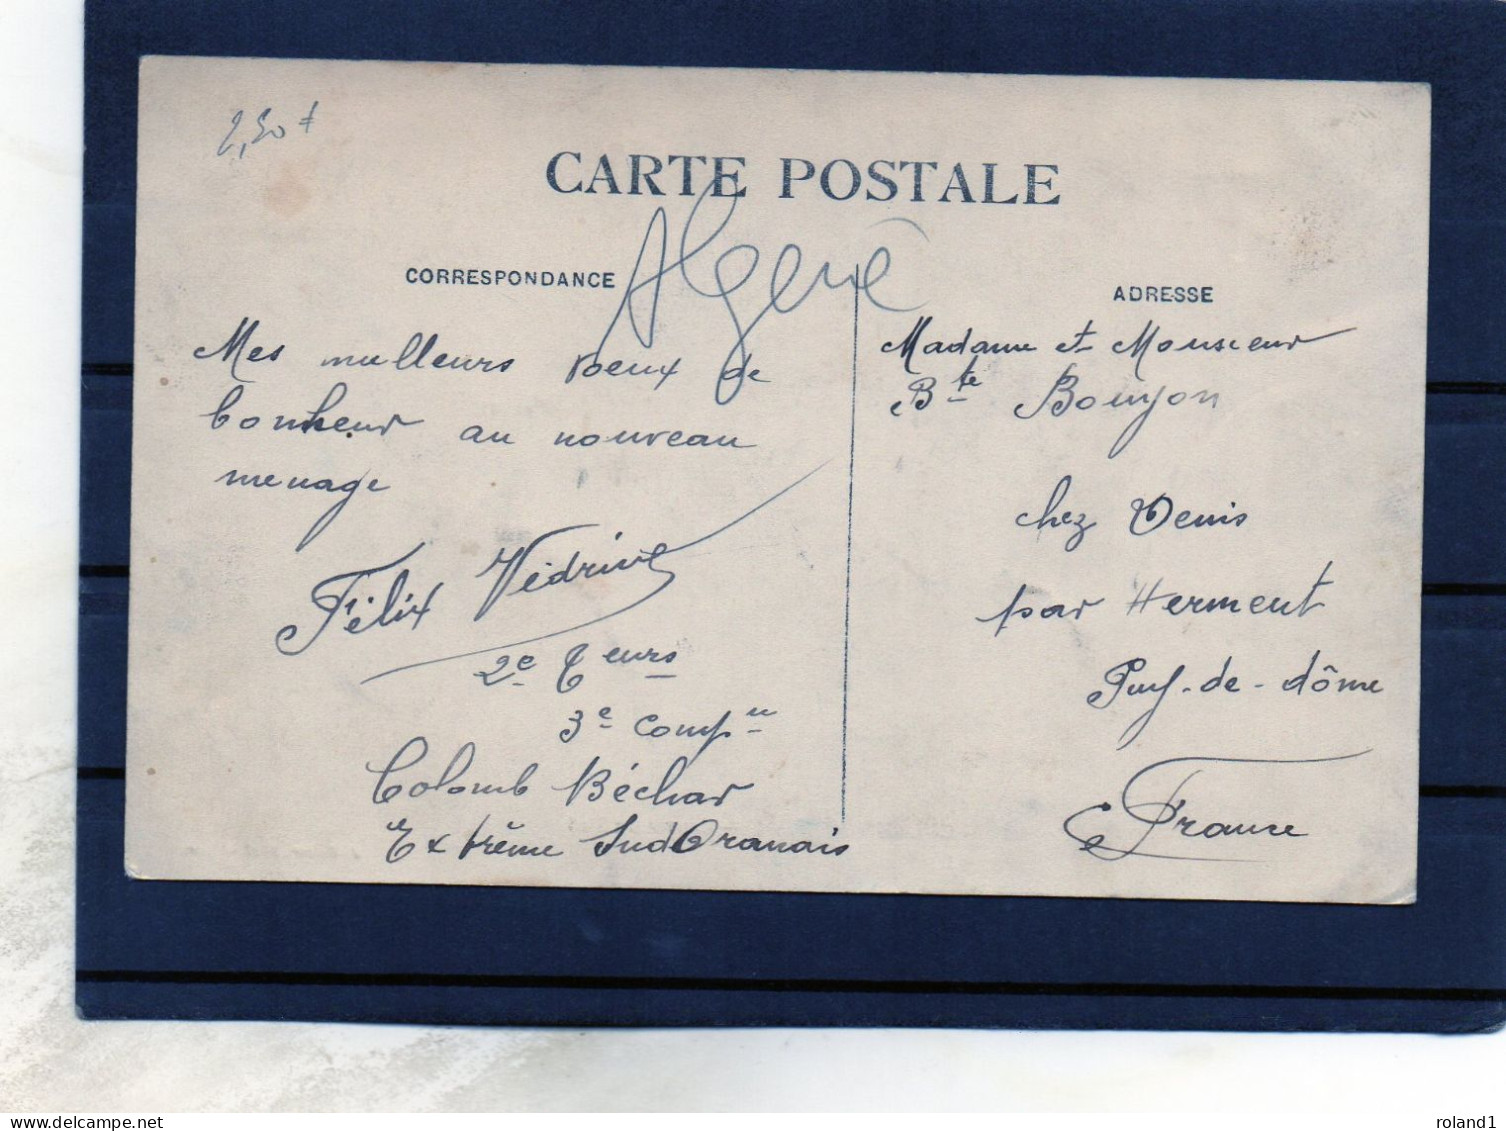 2,50 €
CARTE POSTALE
Algerie
CORRESPONDANCE
Mes meilleurs voeux de
bonheur au nouveau
menage
Félix Védrine
2e Teurs
3e Compie
Colomb Béchar
Extrême Sud Oranais
ADRESSE
Madame et Monsieur
Bte Bouyon
chez Denis
par Herment
Puy-de-dôme
France
delcampe.net
roland1